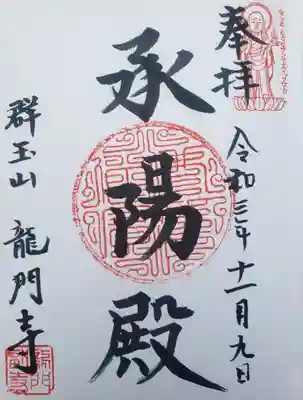 奉拝
令和三年十一月九日
承陽殿
群玉山 龍門寺